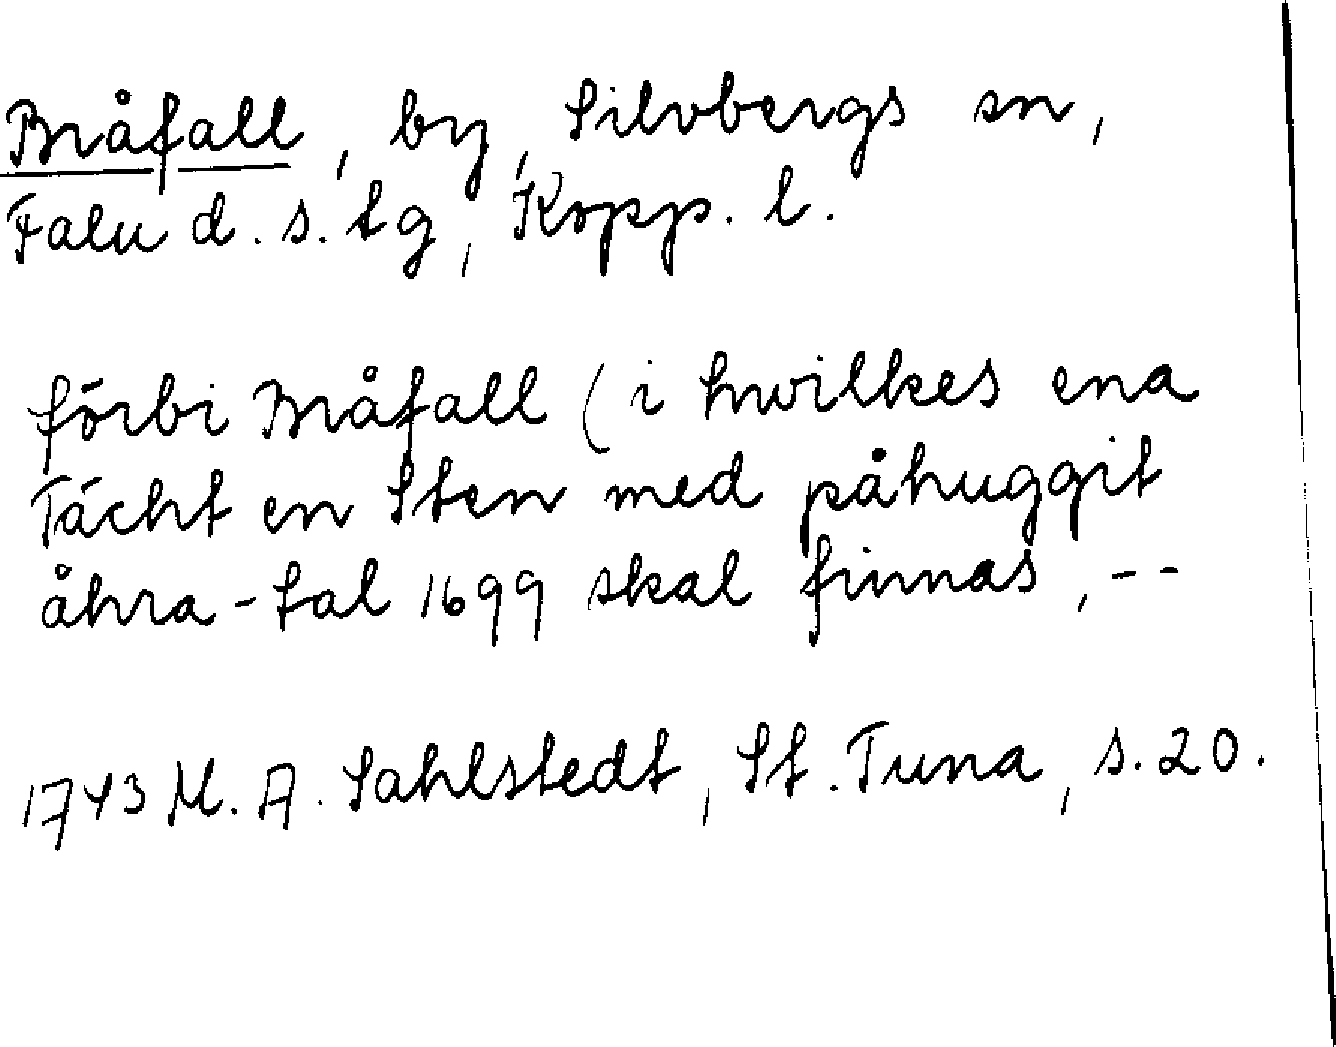 Bråfall, by, Silvbergs sn,
Falu d. s. tg, Kopp. l.
förbi Bråfall (i hwilkes ena
Tächt en Sten med påhuggit
åhra-tal 1699 skal finnas, --
1743 M. A. Sahlstedt, St. Tuna, s. 20.